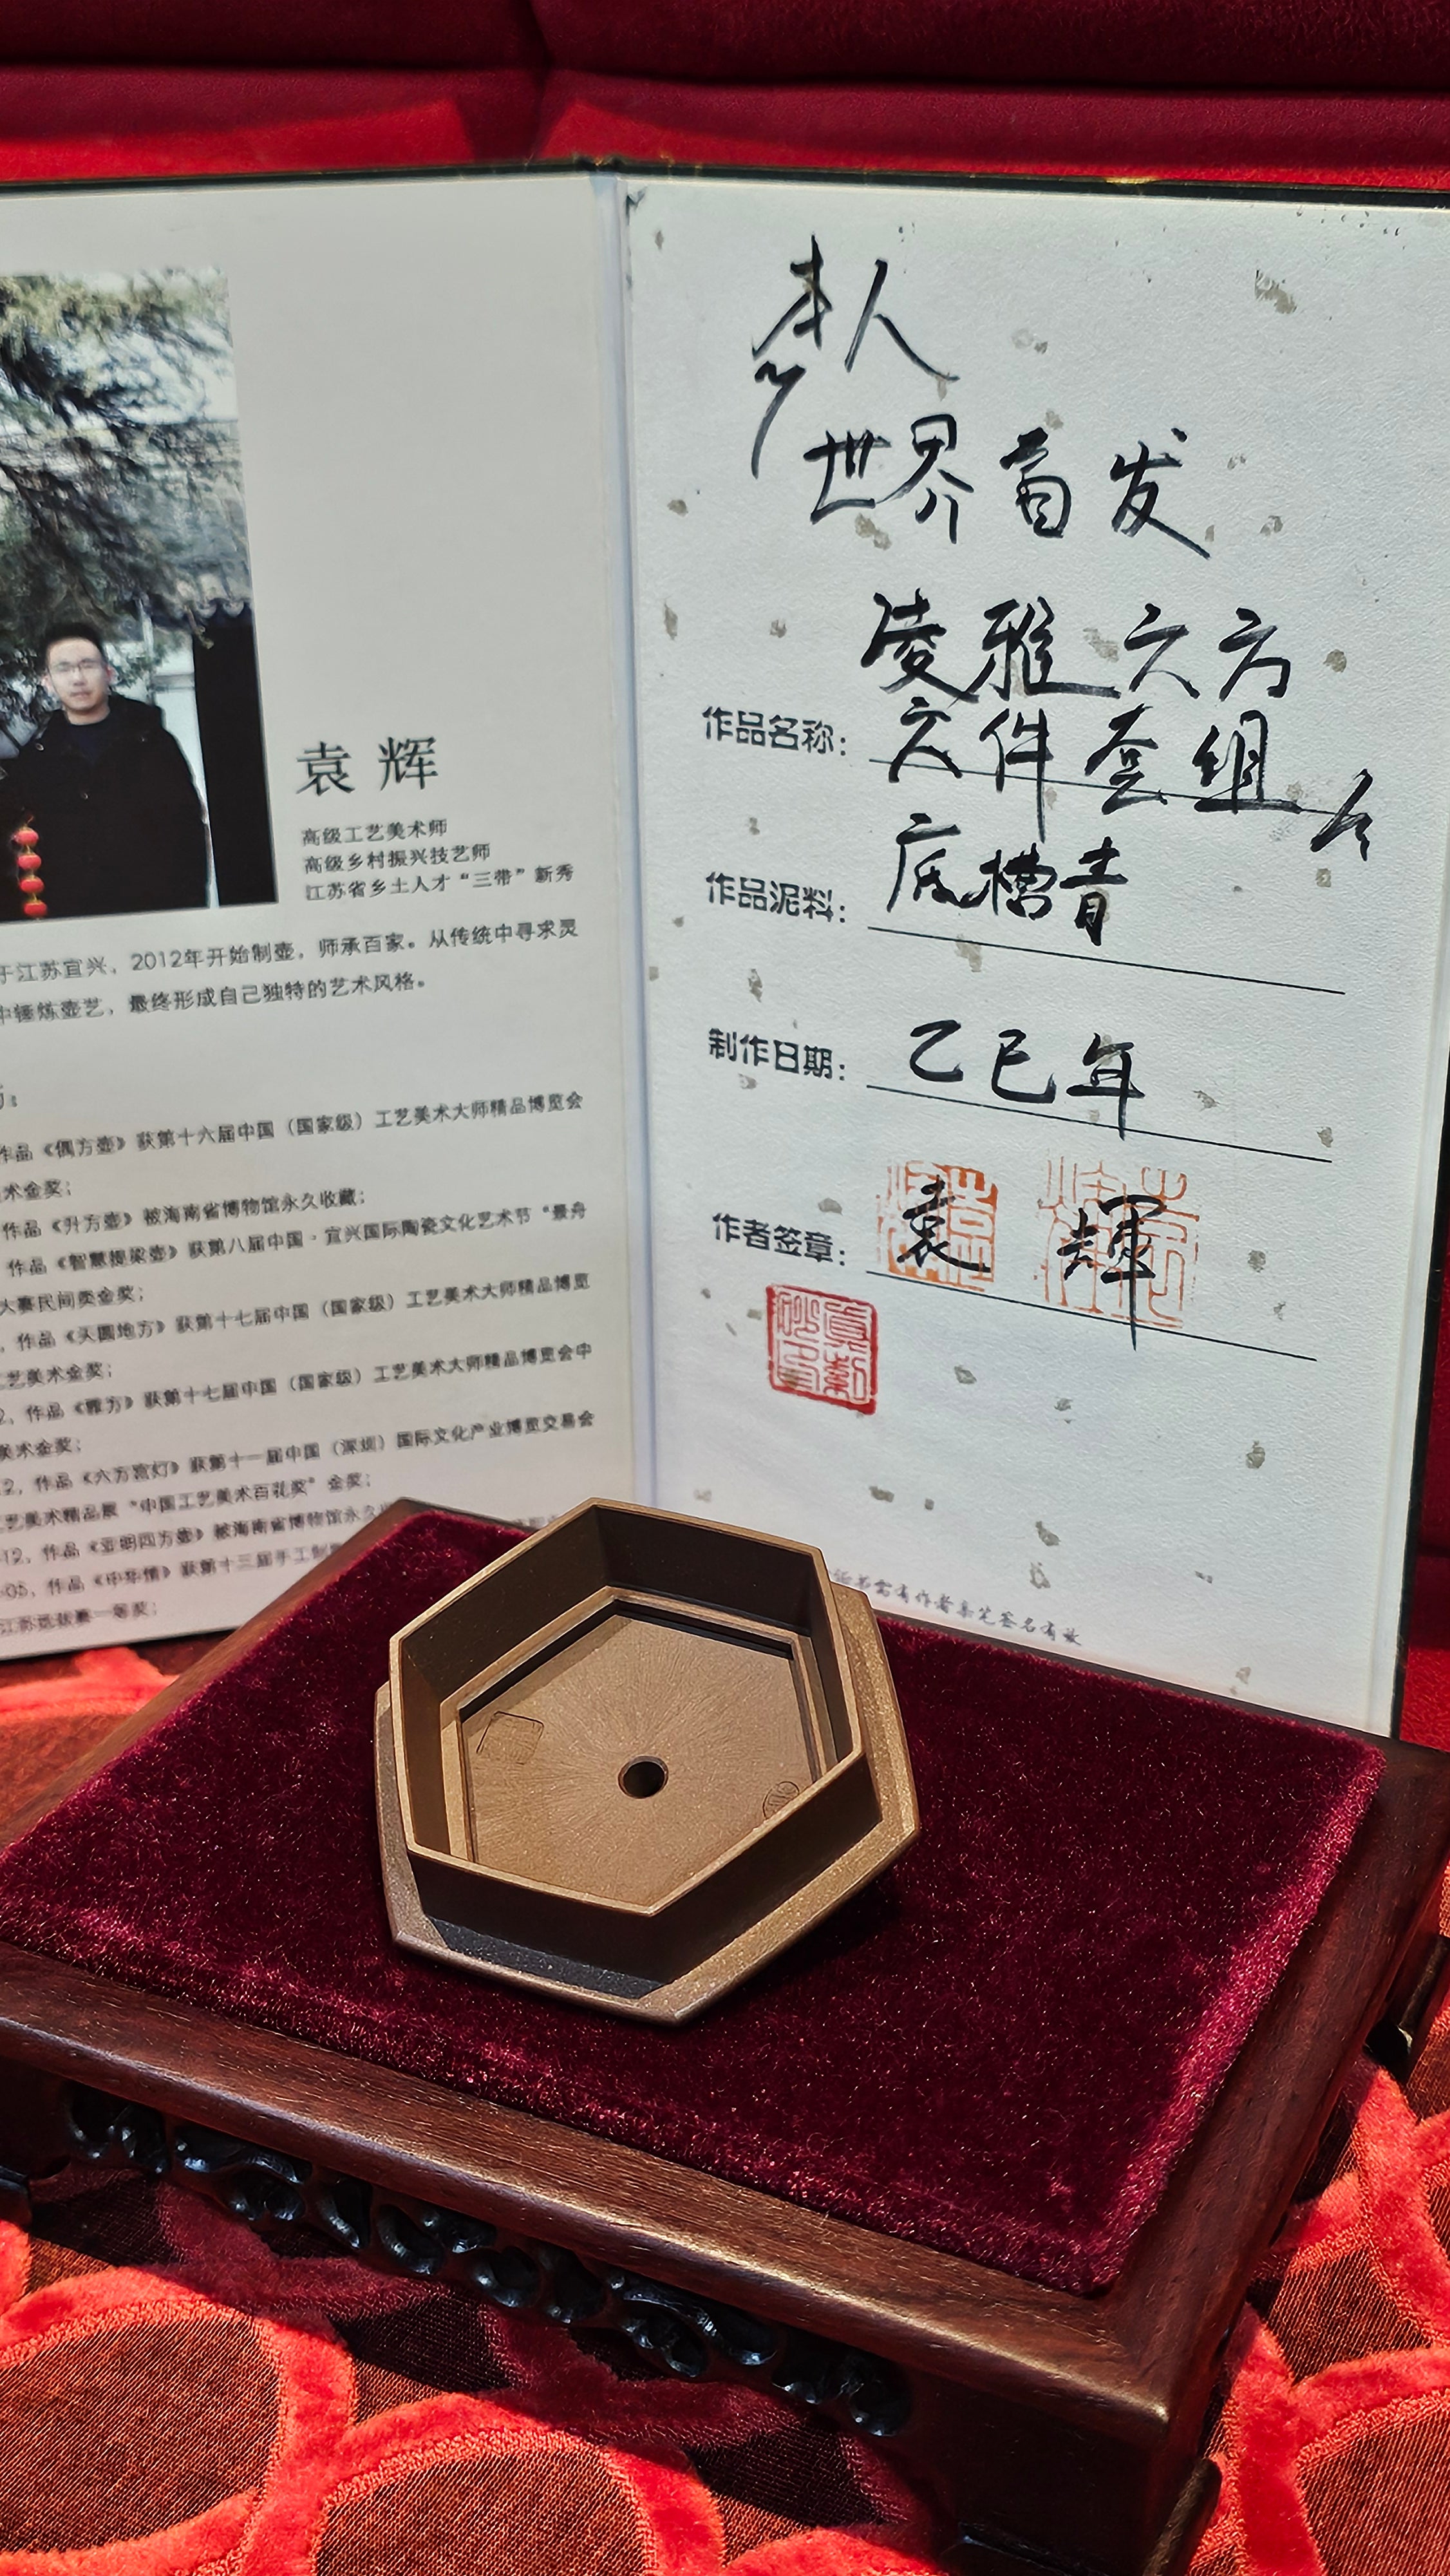 袁 辉
高级工艺美术师
高级乡村振兴技艺师
江苏省乡土人才“三带”新秀
于江苏宜兴，2012年开始制壶，师承百家。从传统中寻求灵
中锤炼壶艺，最终形成自己独特的艺术风格。
作品《偶方壶》获第十六届中国（国家级）工艺美术大师精品博览会
术金奖；
作品《升方壶》被海南省博物馆永久收藏；
作品《智慧提梁壶》获第八届中国·宜兴国际陶瓷文化艺术节“景舟
大赛民间类金奖；
，作品《天圆地方》获第十七届中国（国家级）工艺美术大师精品博览
艺美术金奖；
2，作品《雅方》获第十七届中国（国家级）工艺美术大师精品博览会中
美术金奖；
12，作品《六方宫灯》获第十一届中国（深圳）国际文化产业博览交易会
艺美术精品展“中国工艺美术百花奖”金奖；
-12，作品《亚明四方壶》被海南省博物馆永久
-05，作品《中华情》获第十三届手工制
江苏选拔赛一等奖；
本人
世界首发
凌雅六方
作品名称：六件套组
作品泥料：底槽青
制作日期：乙巳年
作者签章：袁輝
有作者亲笔签名有效